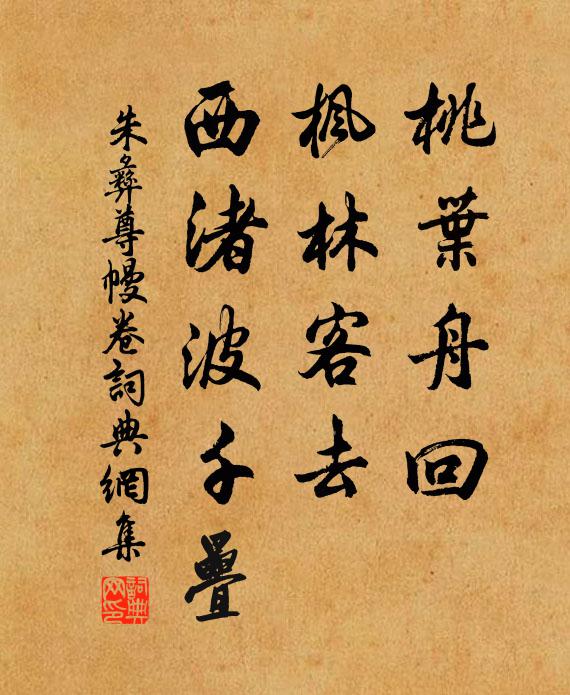 桃葉舟回
楓林客去
西渚波千疊
朱彝尊幔卷詞典網集
詞典网印